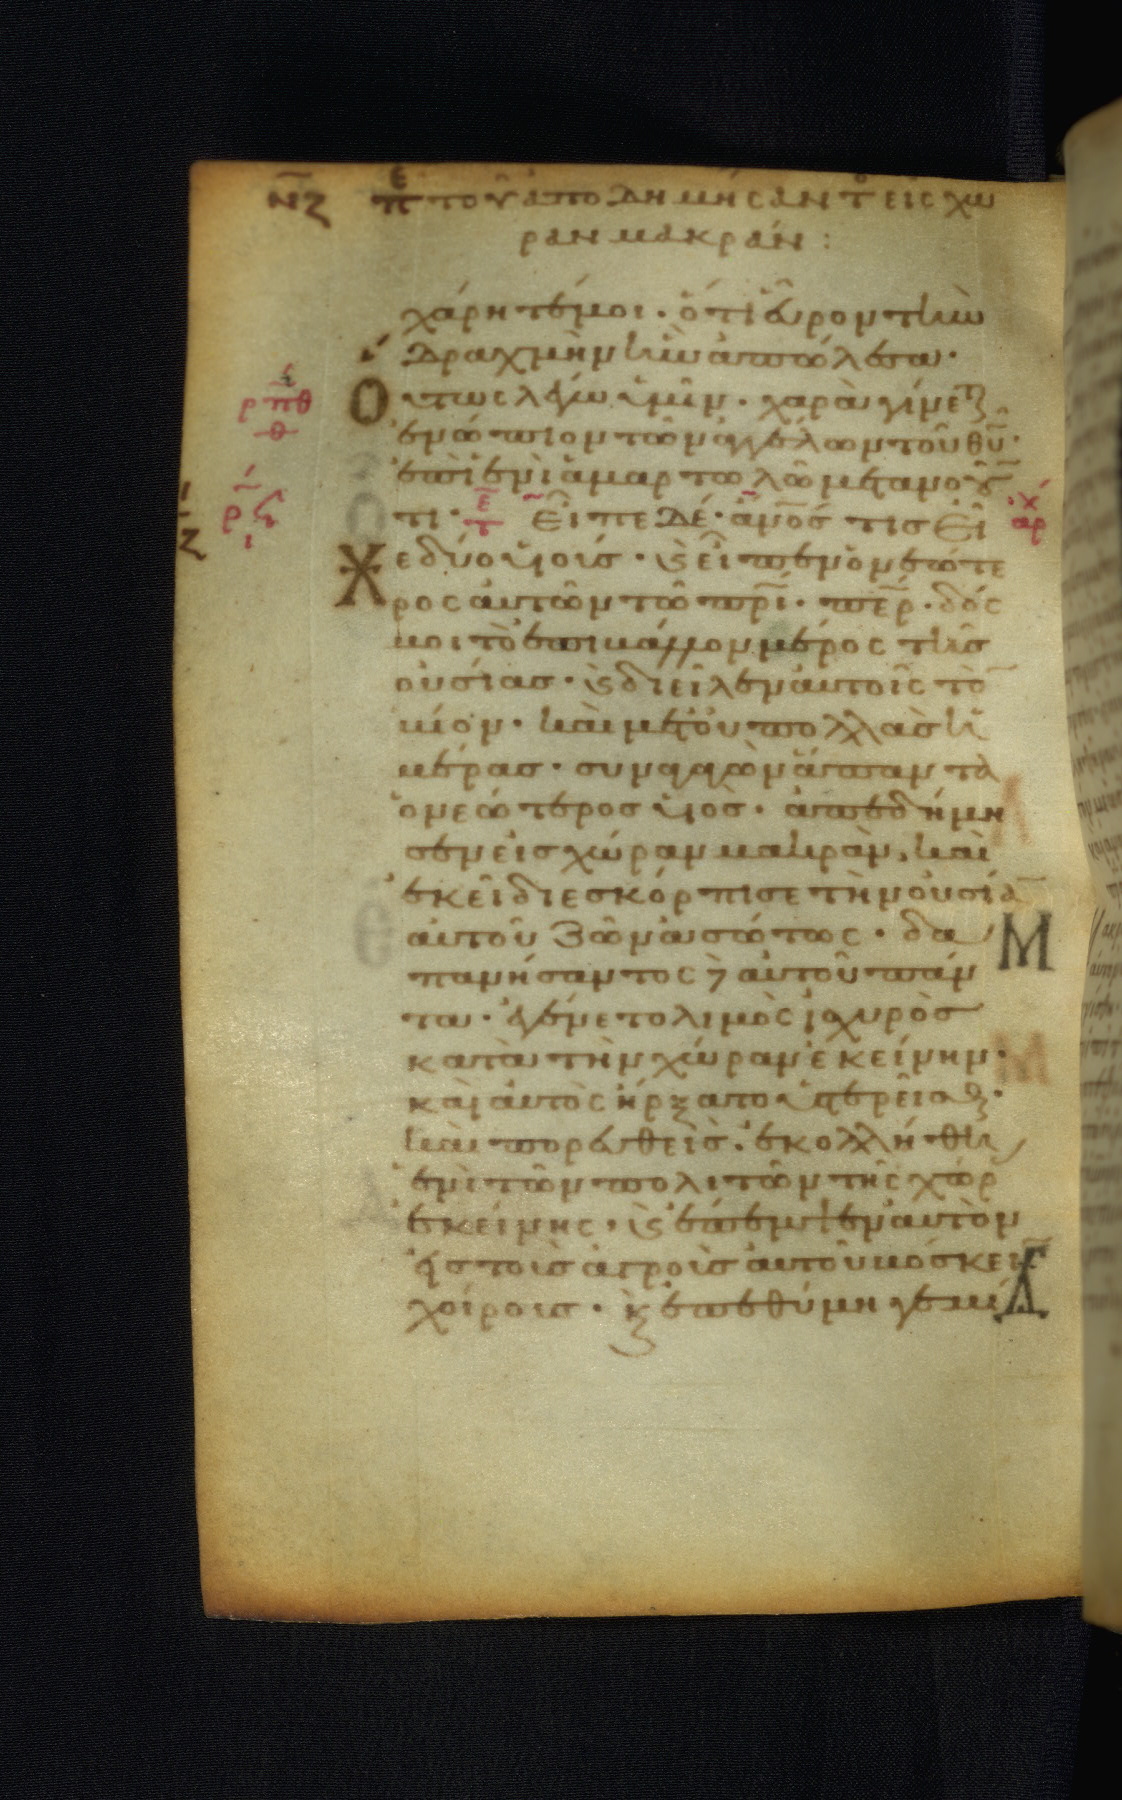 νζ πε τοῦ ἀποδημήσαντ εἰς χώ
ραν μακράν :
χάρητέ μοι · ὅτι εὗρον τὴν
δραχμὴν ἣν ἀπώλεσα ·
Οὕτως λέγω ὑμῖν · χαρὰ γίνετ
ἐνώπιον τῶν ἀγγέλων τοῦ θυ ·
ἐπὶ ἑνὶ ἁμαρτωλῶ μετανοοῦν
τι · τε Εἶπε δέ · ἄνος τις εἶ
Χε δύο υἱούς · ϗ εἶπεν ὁ νεώτε
ρος αὐτῶν τῶ πρι · περ · δός
μοι τὸ ἐπιβάλλον μέρος τῆς
οὐσίας · ϗ διεῖλεν αὐτοῖς τὸ
βίον · καὶ μετ οὐ πολλὰς ἡ
μέρας · συναγαγὼν ἅπαντα
ὁ νεώτερος υἱὸς · ἀπεδήμη
σεν εἰς χώραν μακρὰν, καὶ
ἐκεῖ διεσκόρπισε τὴν οὐσία
αὐτοῦ ζῶν ἀσώτως · δα
πανήσαντος δὲ αὐτοῦ πάν
τα · ἐγένετο λιμὸς ἰσχυρὸς
κατὰ τὴν χώραν ἐκείνην ·
καὶ αὐτὸς ἤρξατο ὑστερεῖσθ ·
καὶ πορευθεὶς · ἐκολλήθη
ἑνὶ τῶν πολιτῶν τῆς χώρ
ἐκείνης · ϗ ἔπεμψεν αὐτὸν
εἰς τοὺς ἀγροὺς αὐτοῦ βόσκειν
χοίρους · ϗ ἐπεθύμη γεμί